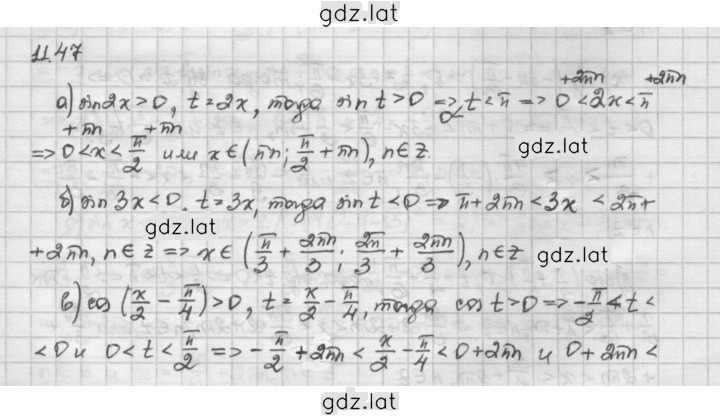 gdz.lat
11.47
а) sin2x > 0, t = 2x, тогда sin t > 0 => 0 < t < π => 0 +2πn < 2x < π +2πn
=> 0 +πn < x < π/2 +πn или x ∈ (πn; π/2 + πn), n ∈ Z.
gdz.lat
б) sin 3x < 0. t = 3x, тогда sin t < 0 => π + 2πn < 3x < 2π +
gdz.lat
+ 2πn, n ∈ Z => x ∈ (π/3 + 2πn/3; 2π/3 + 2πn/3), n ∈ Z
gdz.lat
в) cos (x/2 - π/4) > 0, t = x/2 - π/4, тогда cos t > 0 => -π/2 < t <
< 0 и 0 < t < π/2 => -π/2 + 2πn < x/2 - π/4 < 0 + 2πn и 0 + 2πn <
gdz.lat